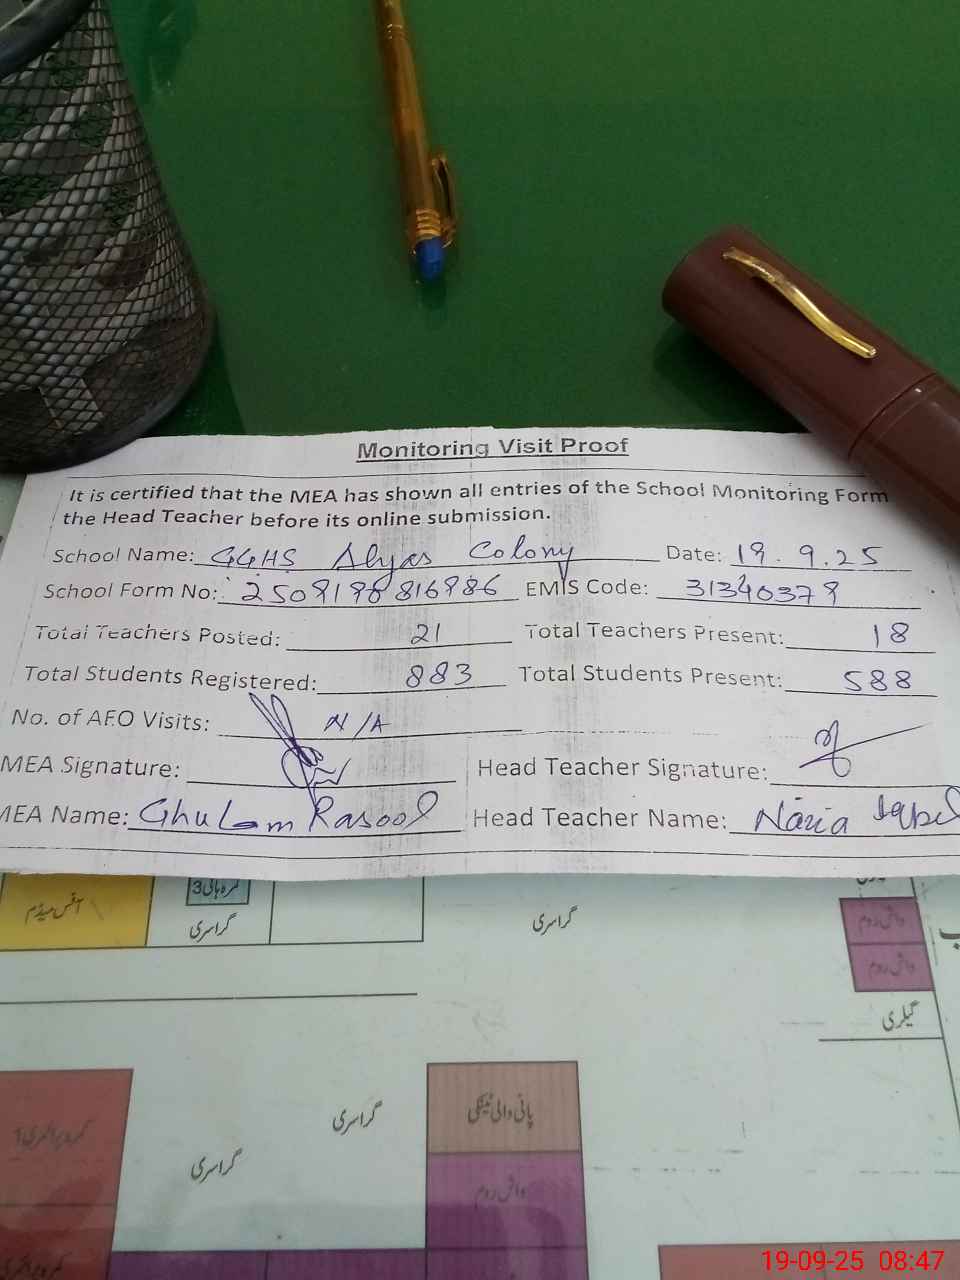 Monitoring Visit Proof
It is certified that the MEA has shown all entries of the School Monitoring Form
the Head Teacher before its online submission.
School Name: GGHS Alyas Colony Date: 19.9.25
School Form No: EMIS Code: 31340379
Total Teachers Posted: 21 Total Teachers Present: 18
Total Students Registered: 883 Total Students Present: 588
No. of AEO Visits: N/A
MEA Signature: Head Teacher Signature:
MEA Name: Ghulam Rasool Head Teacher Name: Nazia Iqbal
آفس میڈم
گراسری
گراسری
واش روم
واش روم
گیلری
گراسری
پانی والی ٹینکی
گراسری
واش روم
19-09-25 08:47